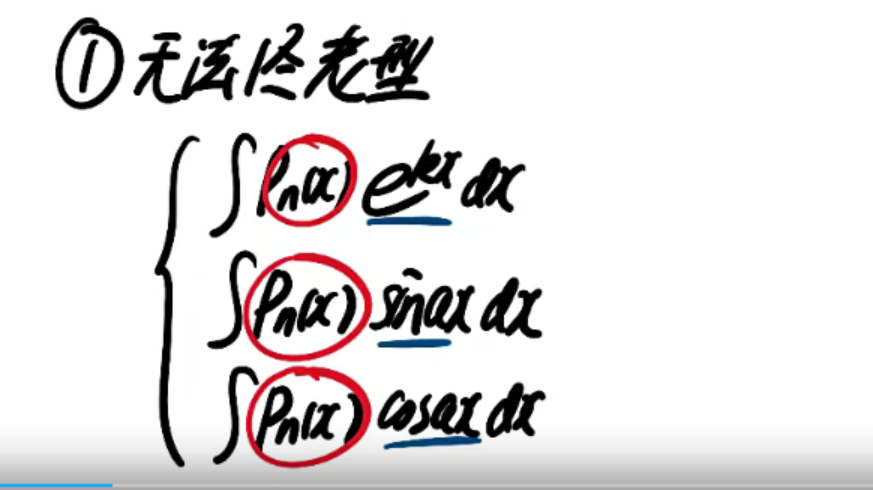 ① 无法终老型
∫ Pn(x) e^kx dx
∫ Pn(x) sin ax dx
∫ Pn(x) cos ax dx